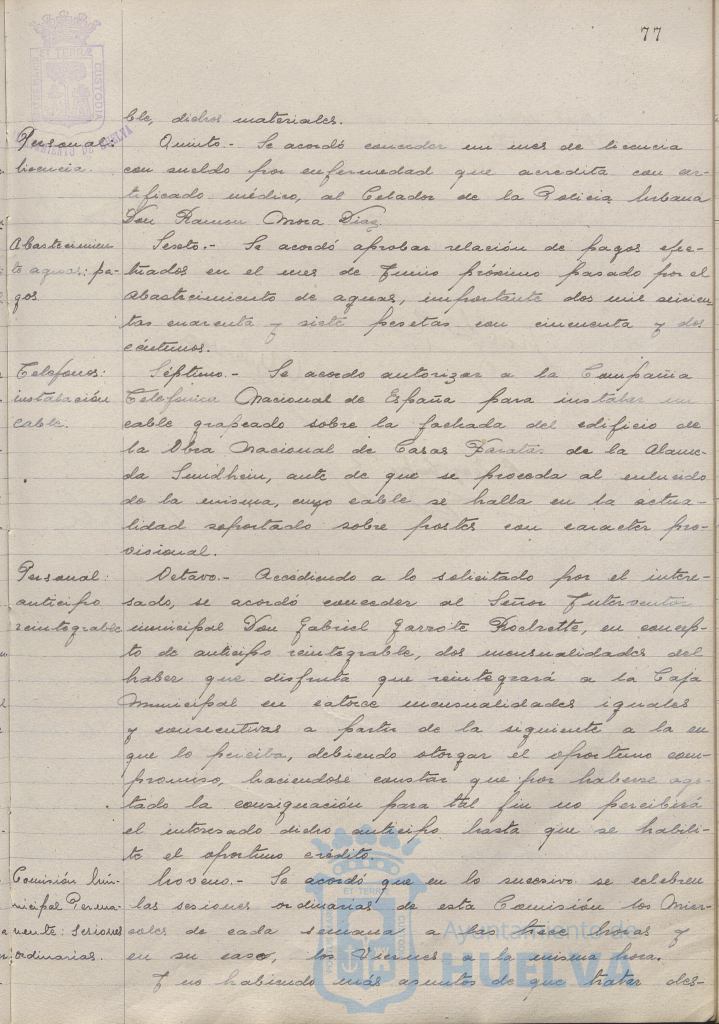 77
ble, dichos materiales.
Personal: licencia.
Quinto.- Se acordó conceder un mes de licencia
con sueldo por enfermedad que acredita con cer-
tificado médico, al Celador de la Policia Urbana
Don Ramon Mora Diaz.
Abastecimien
to aguas: pa-
gos.
Sexto.- Se acordó aprobar relación de pagos efec-
tuados en el mes de Junio próximo pasado por el
Abastecimiento de aguas, importante dos mil seiscien
tas cuarenta y siete pesetas con cincuenta y dos
céntimos.
Telefonos:
instalación
cable.
Séptimo.- Se acordo autorizar a la Compañia
Telefónica Nacional de España para instalar un
cable grapeado sobre la fachada del edificio de
la Obra Nacional de Casas Baratas de la Alame-
da Sundheim, ante de que se proceda al enlucido
de la misma, cuyo cable se halla en la actua-
lidad soportado sobre postes con caracter pro-
visional.
Personal:
anticipo
reintegrable
Octavo.- Accediendo a lo solicitado por el intere-
sado, se acordó conceder al Señor Interventor
municipal Don Gabriel Garzote Rochette, en concep-
to de anticipo reintegrable, dos mensualidades del
haber que disfruta que reintegrará a la Caja
Municipal en catorce mensualidades iguales
y consecutivas a partir de la siguiente a la en
que lo perciba, debiendo otorgar el oportuno com-
promiso, haciendose constar que por haberse ago-
tado la consignación para tal fin no percibirá
el interesado dicho anticipo hasta que se habili-
te el oportuno crédito.
Comisión Mu-
nicipal Perma-
nente: sesiones
ordinarias.
Noveno.- Se acordó que en lo sucesivo se celebren
las sesiones ordinarias de esta Comisión los Miér-
coles de cada semana a las trece horas y
en su caso, los Viernes a la misma hora.
Y no habiendo más asuntos de que tratar des-
Ayuntamiento de
HUELVA